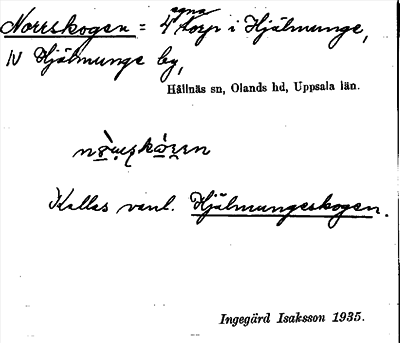 Norrskogen = 4 egna torp i Hjälmunge,
N Hjälmunge by,
Hållnäs sn, Olands hd, Uppsala län.
Kallas vanl. Hjälmungeskogen.
Ingegärd Isaksson 1935.